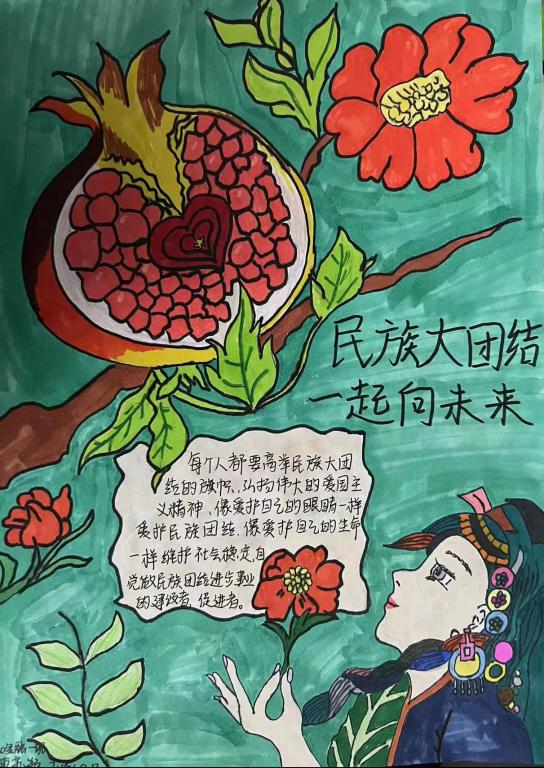 民族大团结
一起向未来
每个人都要高举民族大团
结的旗帜，弘扬伟大的爱国主
义精神，像爱护自己的眼睛一样
爱护民族团结，像爱护自己的生命
一样维护社会稳定，自
觉做民族团结进步事业
的建设者，促进者。